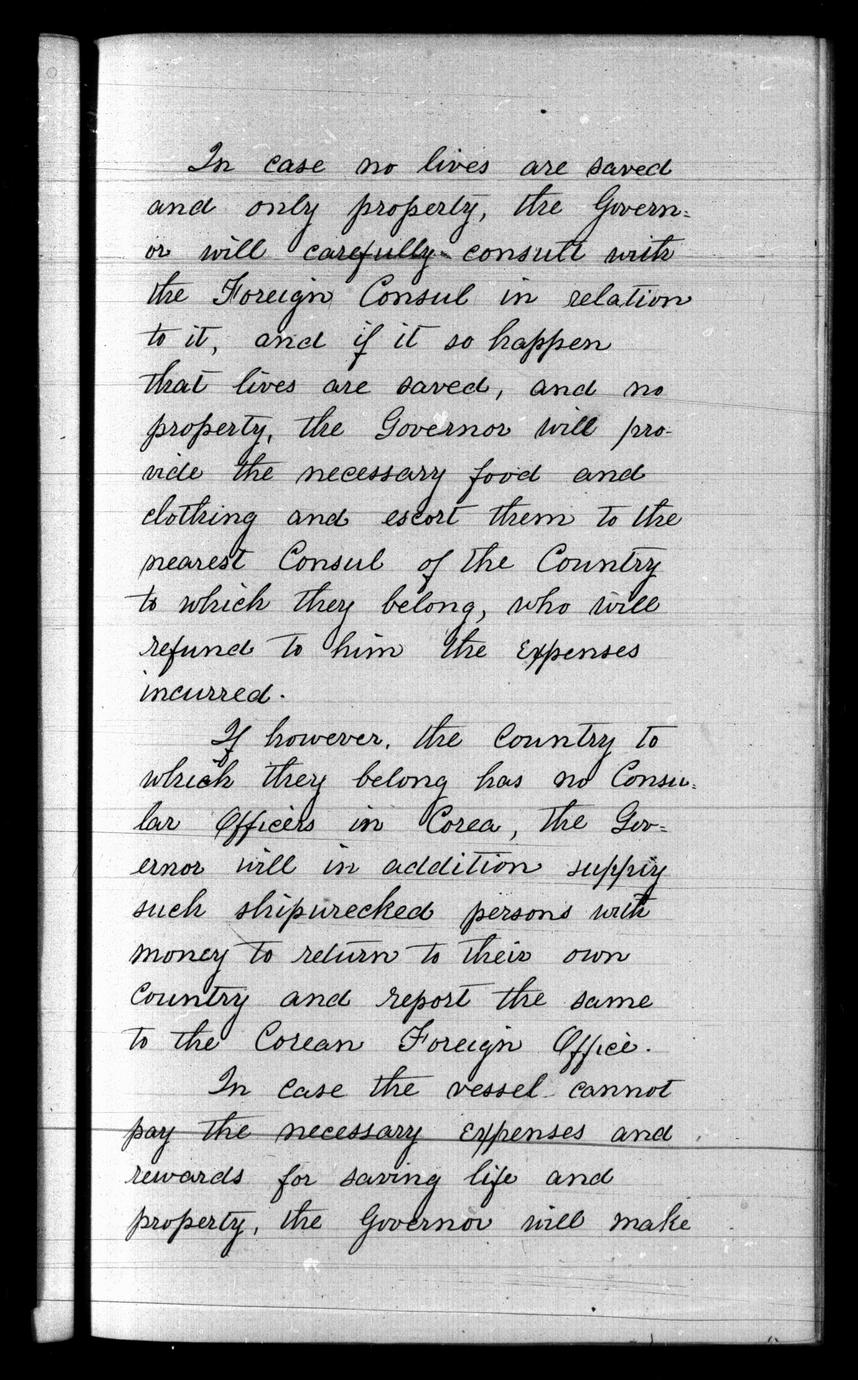 In case no lives are saved
and only property, the Govern=
or will carefully consult with
the Foreign Consul in relation
to it, and if it so happen
that lives are saved, and no
property, the Governor will pro-
vide the necessary food and
clothing and escort them to the
nearest Consul of the Country
to which they belong, who will
refund to him the expenses
incurred.
If however, the Country to
which they belong has no Consu=
lar Officers in Corea, the Gov=
ernor will in addition supply
such shipwrecked persons with
money to return to their own
Country and report the same
to the Corean Foreign Office.
In case the vessel cannot
pay the necessary expenses and
rewards for saving life and
property, the Governor will make